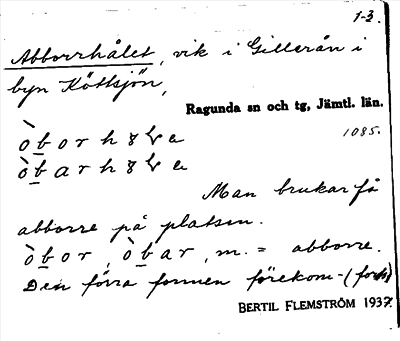 1-3.
Abborrhålet, vik i Gillerån i
byn Köttsjön,
Ragunda sn och tg, Jämtl. län.
1085.
òborh
òbarh
Man brukar få
abborre på platsen.
òbor, òbar, m. = abborre.
Den förra formen förekom-(forn)
BERTIL FLEMSTRÖM 1937.